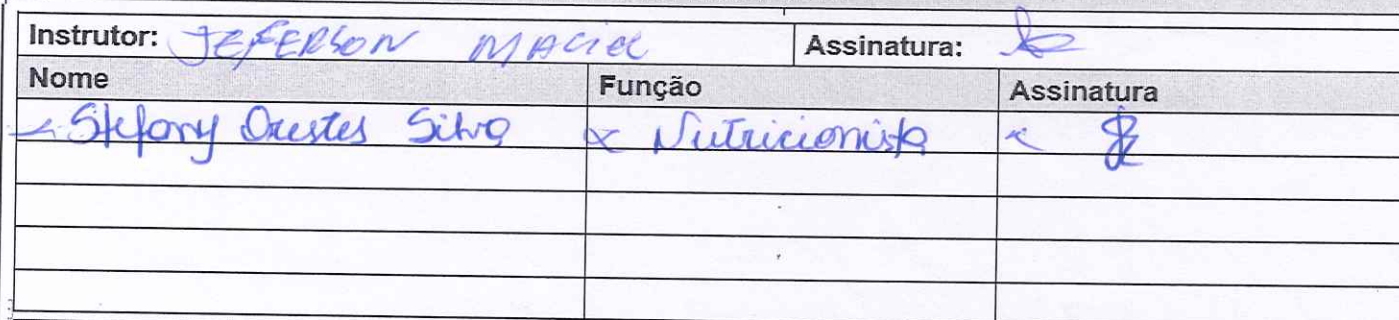 Instrutor: JEFERSON MACIEL Assinatura:
Nome Função Assinatura
Stefany Orestes Silva Nutricionista